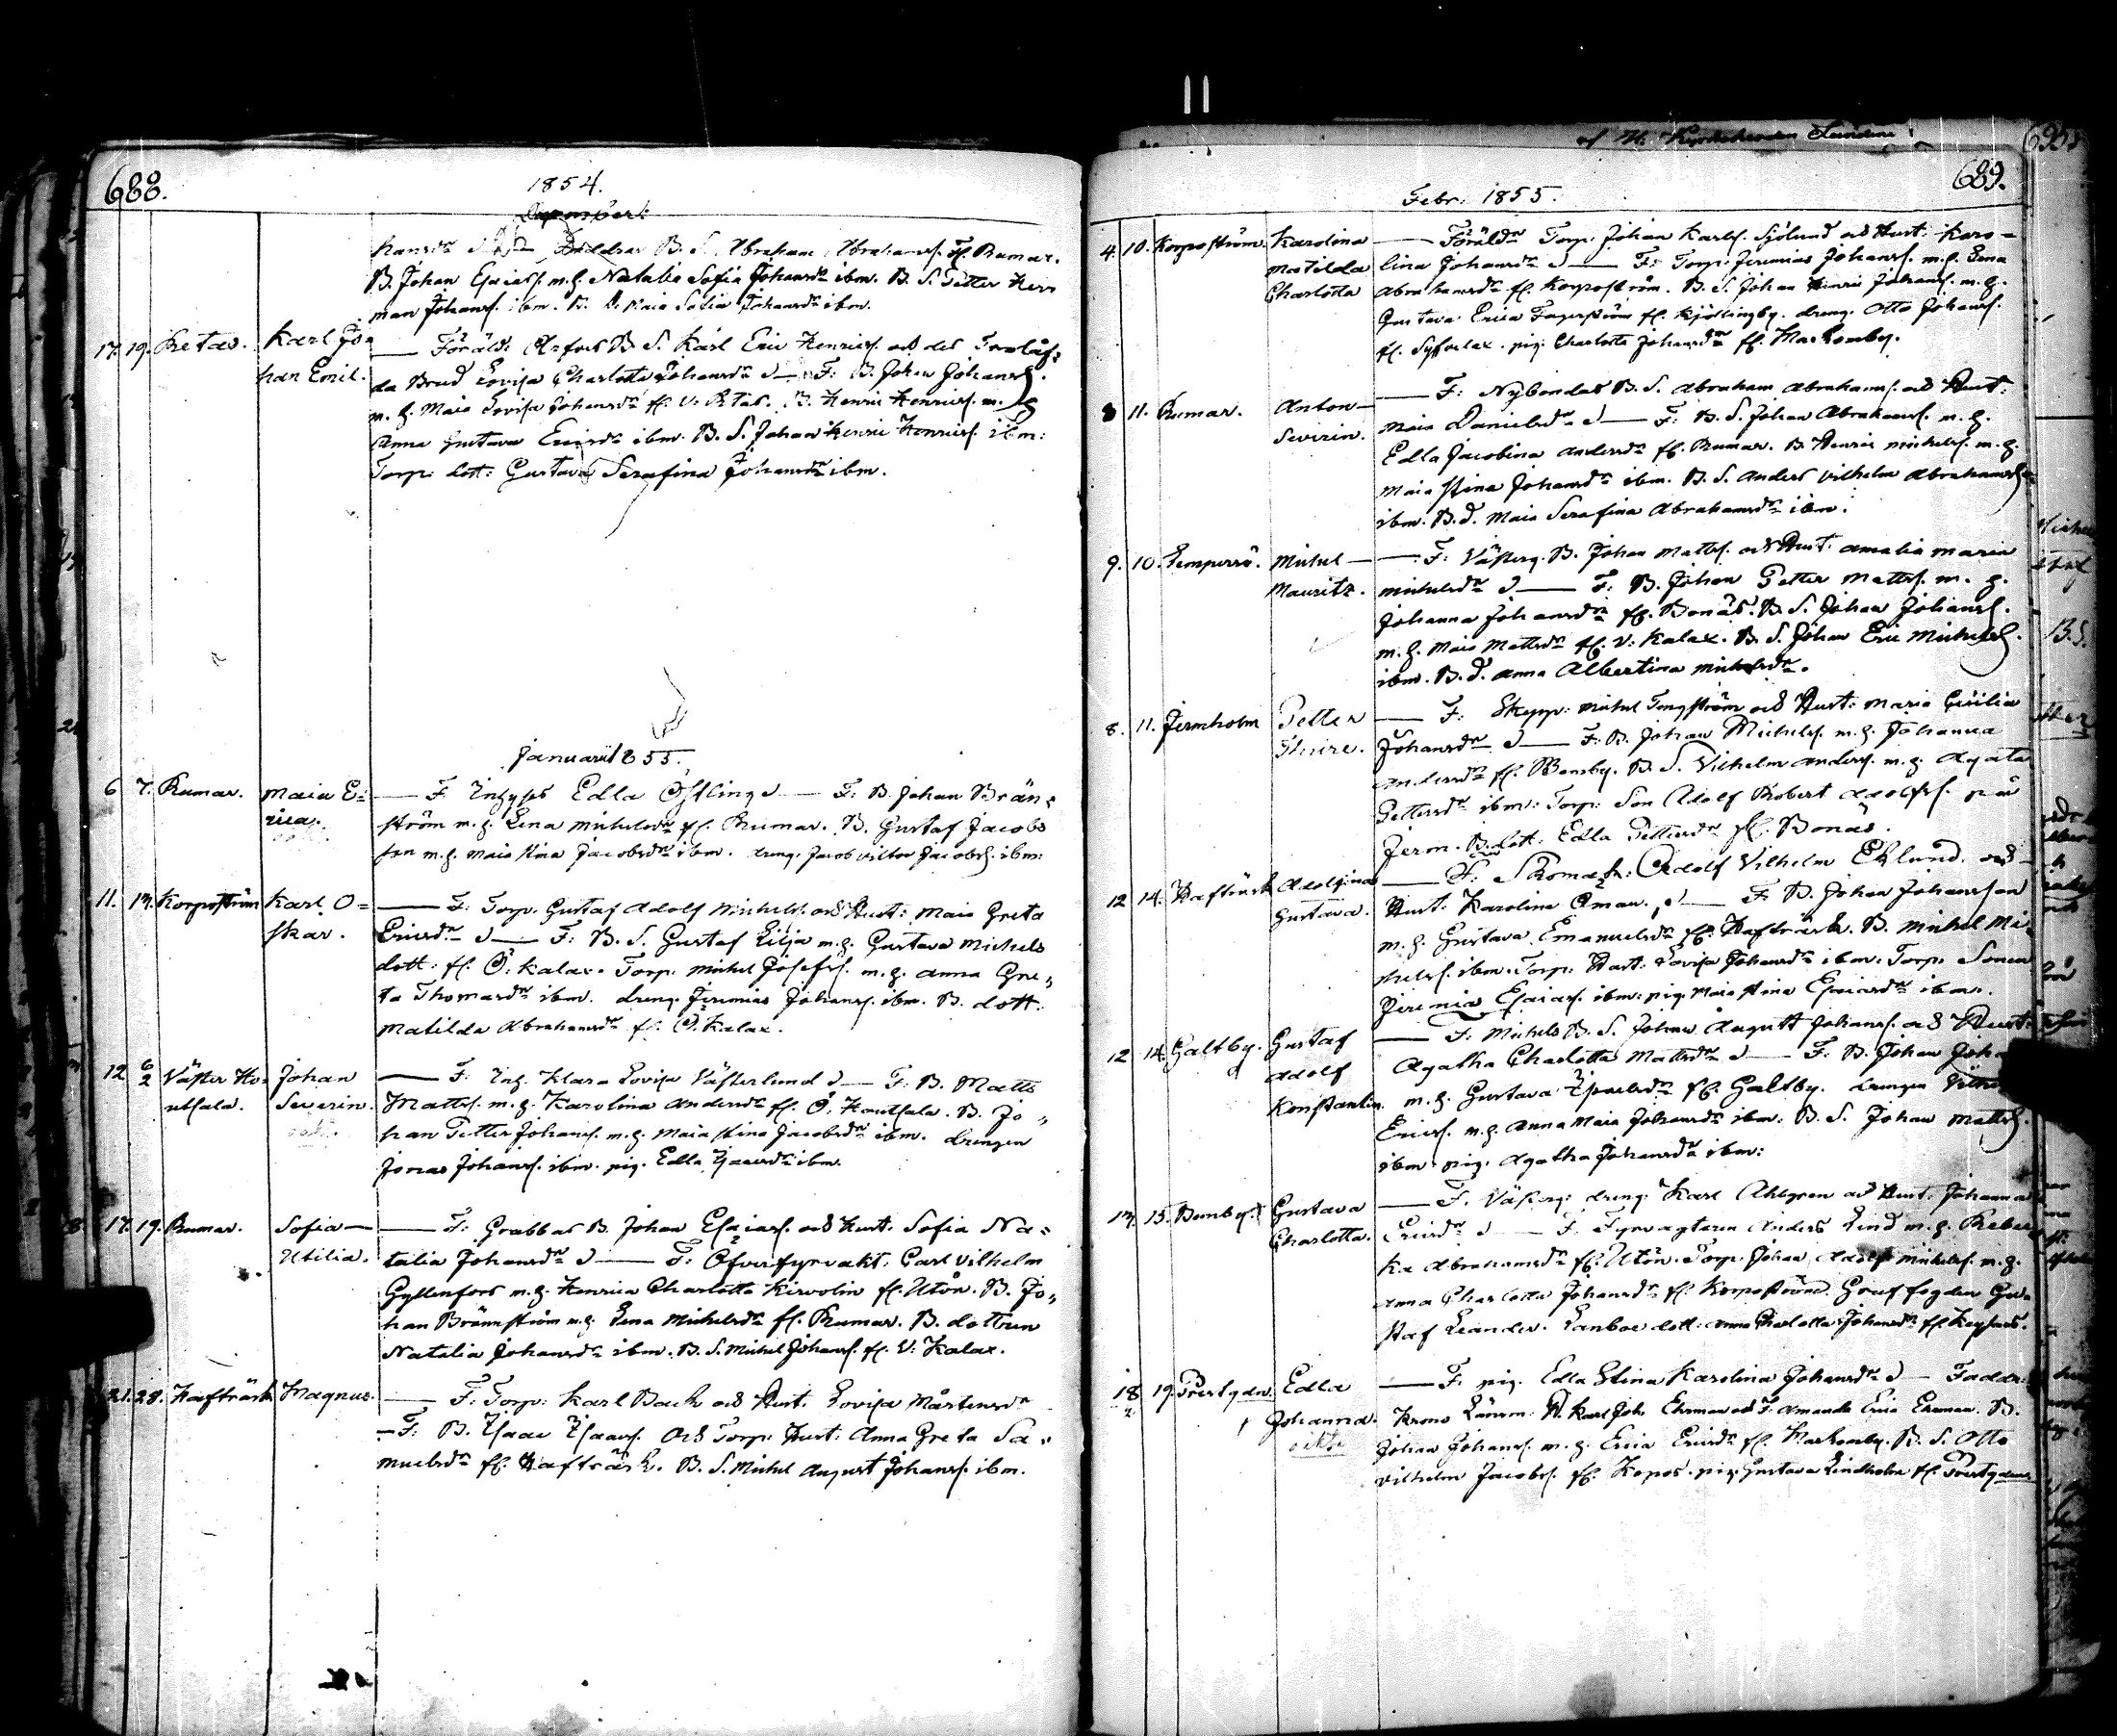 688.
1854.
December
hansdr d — Faddrar B. S. Abraham Abrahams. fl. Rumar.
B. Johan Esaiass. m. h. Natalia Sofia Johansdr ibm. B. S. Petter Her=
man Johans. ibm. B. d. Maia Sofia Johansdr ibm.
17. 19. Retas. Karl Jo= — Föräld: B. S. Karl Eric Henrics. och des Trolåf=
han Emil. da Brud Lovisa Charlotta Johansdr d — F: B. Johan Johans.
m. h. Maia Lovisa Johansdr fl. V. Retas. B. Henric Henrics. m. h
Anna Gustava Ericsdr ibm. B. S. Johan Henric Henrics. ibm:
Torp: dott: Gustava Serafina Johansdr ibm.
Januari 1855.
6 7. Rumar. Maia E= — F. Inhyses Edla Östling d — F: B. Johan Brän=
rica. ström m. h. Lena Michelsdr fl. Rumar. B. Gustaf Jacobs
son m. h. Maia Stina Jacobsdr ibm. dreng. Jacob Victor Jacobs. ibm:
11. 14. Korpoström Karl O= — F: Torp. Gustaf Adolf Michels. och Hust: Maia Greta
skar. Ericsdr d — F: B. S. Gustaf Lilja m. h. Gustava Michels
dott: fl. Ö. Kalax. Torp: Michel Josefs. m. h. Anna Gre=
ta Thomasdr ibm. dreng. Jeremias Johans. ibm. B. dott.
Matilda Abrahamsdr fl. Ö. Kalax.
12 6/2 Väster Ho= Johan — F: Inh. Klara Lovisa Västerlund d — F: B. Matts
utsala. Severin. Matts. m. h. Karolina Andersdr fl. Ö. Houtsala. B. Jo=
han Petter Johans. m. h. Maia Stina Jacobsdr ibm. drengen
Jonas Johans. ibm. pig. Edla Isacsdr ibm.
17. 19. Rumar. Sofia — — F: Grabbas B. Johan Esaias. och Hust. Sofia Na=
Utilia. talia Johansdr d — F: Öfverfyrvakt. Carl Vilhelm
Gyllenfors m. h. Henrica Charlotta Kirvolin fl. Utön. B. Jo=
han Brännström m. h. Lena Michelsdr fl. Rumar. B. dottren
Natalia Johansdr ibm. B. S. Michel Johans. fl. V. Kalax.
21. 28. Hafträsk Magnus. — F: Torp: Karl Back och Hust. Lovisa Mårtensdr
— F: B. Isaac Isaacs. och Torp: Hust: Anna Greta Sa=
muelsdr fl. Hafträsk. B. S. Michel August Johans. ibm.
689.
Febr. 1855.
4. 10. Korpoström. Karolina — Föräldr Torp: Johan Karls. Sjölund och Hust: Karo=
Matilda lina Johansdr d — F: Torp: Jeremias Johans. m. h. Lena
Charlotta Abrahamsdr fl. Korpoström. B. S. Johan Henric Johans. m. h.
Gustava Erica Fagerström fl. Kjöllingby. dreng. Otto Johans.
fl. pig: Charlotta Johansdr fl. Markomby.
8 11. Rumar. Anton — — F: Nybondas B. S. Abraham Abrahams. och Hust:
Severin. Maia Danielsdr d — F: B. S. Johan Abrahams. m. h.
Edla Jacobina Andersdr fl. Rumar. B. Henric Michels. m. h.
Maia Stina Johansdr ibm. B. S. Anders Vilhelm Abrahams.
ibm. B. d. Maia Serafina Abrahamsdr ibm.
9. 10. Lempersö. Michel — — F: Västerg. B. Johan Matts. och Hust. Amalia Maria
Mauritz. Michelsdr d — F: B. Johan Petter Matts. m. h.
Johanna Johansdr fl. Bonäs. B. S. Johan Johans.
m. h. Maia Mattsdr fl. V. Kalax. B. S. Johan Eric Michels.
ibm. B. d. Anna Albertina Michelsdr.
8. 11. Jermholm Petter — F: Skepp: Michel Tengström och Hust: Maria Cicilia
Thure. Johansdr d — F: B. Johan Michels. m. h. Johanna
Andersdr fl. Bensby. B. S. Vilhelm Anders. m. h. Agata
Pettersdr ibm: Torp: Son Adolf Robert Adolfs. på
Jerm. B. dott: Edla Pettersdr fl. Bonäs.
12 14. Hafträsk Adolfina — F: Skomak: Adolf Vilhelm Eklund och
Gustava. Hust. Karolina Öman, d — F: B. Johan Johansson
m. h. Gustava Emanuelsdr fl. Hafträsk. B. Michel Mi=
chels. ibm. Torp: Hust: Lovisa Johansdr ibm: Torp: Sonen
Jeremia Esaias. ibm: pig. Maia Stina Esaiasdr ibm.
12 14. Galtby. Gustaf — F: Michels B. S. Johan August Johans. och Hust:
Adolf Agatha Charlotta Mattsdr d — F: B. Johan Joh
Konstantin. m. h. Gustava Israelsdr fl. Galtby. drengen
Erics. m. h. Anna Maia Johansdr ibm: B. S. Johan Matts.
ibm. pig. Agatha Johansdr ibm:
14. 15. Bensby. Gustava — F. Västerg: dreng: Karl Ahlgren och Hust: Johanna
Charlotta. Ericsdr d — F. Fyrvagtaren Anders Lind m. h. Rebec
ka Abrahamsdr fl. Utön. Torp: Johan Adolf Michels. m. h.
Anna Charlotta Johansdr fl. Korpoström. Gruffogden Gu=
staf Leander. Lanboe dott: Anna Charlotta Johansdr fl.
18 19. Prestgdn. Edla — F: pig. Edla Stina Karolina Johansdr d — Faddr:
Johanna. Krono Länsm. Karl Joh. Ehrman och F. Amanda Erica Ehrman. B.
Johan Johans. m. h. Erica Ericsdr fl. Markomby. B. S. Otto
Vilhelm Jacobs. fl. Kopos. pig. Gustava Lindholm fl. Prestgdn